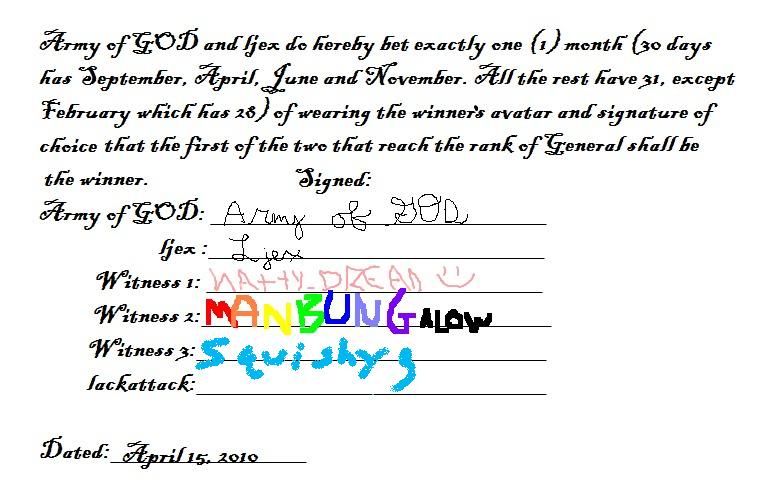 Army of GOD and ljex do hereby bet exactly one (1) month (30 days
has September, April, June and November. All the rest have 31, except
February which has 28) of wearing the winner's avatar and signature of
choice that the first of the two that reach the rank of General shall be
the winner. Signed:
Army of GOD: Army of GOD
ljex : Ljex
Witness 1: NATTY_DREAD
Witness 2: MANBUNGALOW
Witness 3: Squishyg
lackattack:
Dated: April 15, 2010